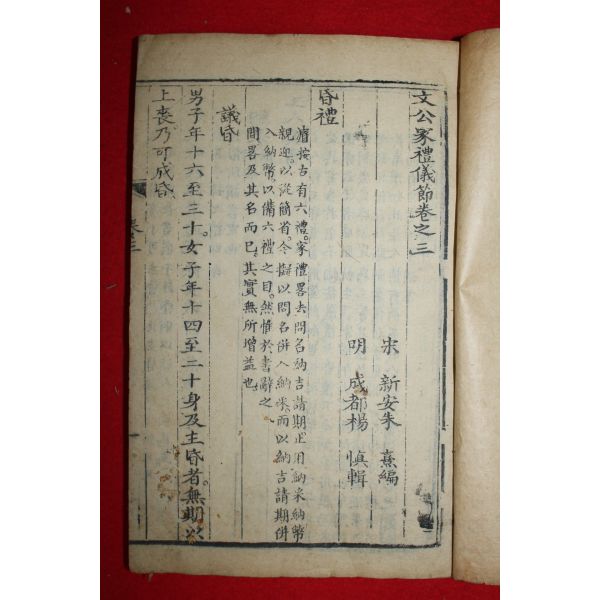 文公家禮儀節卷之三
宋 新安朱 熹編
明 成都楊 慎輯
昏禮
按古有六禮。家禮畧去問名納吉請期止用納采納幣
親迎。以從簡省。今擬以問名併入納采。而以納吉請期併
入納幣。以備六禮之目。然惟於書辭之
間畧及其名而已。其實無所增益也。
議昏
男子年十六至三十。女子年十四至二十身及主昏者。無期以
上喪乃可成昏